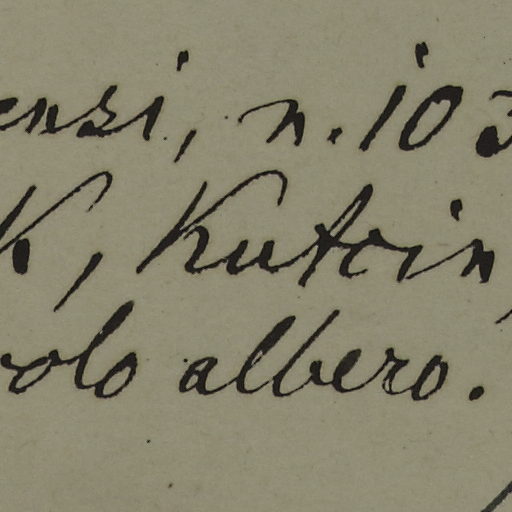 ensi, n. 103
K, Kutcin
colo albero.